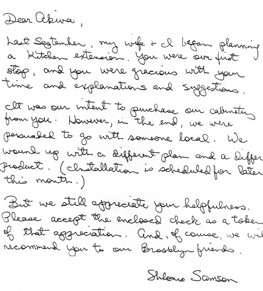 Dear Akiva,
Last September, my wife & I began planning
a kitchen extension. You were our first
stop, and you were gracious with your
time and explanations and suggestions.
It was our intent to purchase our cabinets
from you. However, in the end, we were
persuaded to go with someone local. We
wound up with a different plan and a differ
product. (Installation is scheduled for later
this month.)
But we still appreciate your helpfulness.
Please accept the enclosed check as a token
of that appreciation. And, of course, we wil
recommend you to our Brooklyn friends.
Shlomo Samson